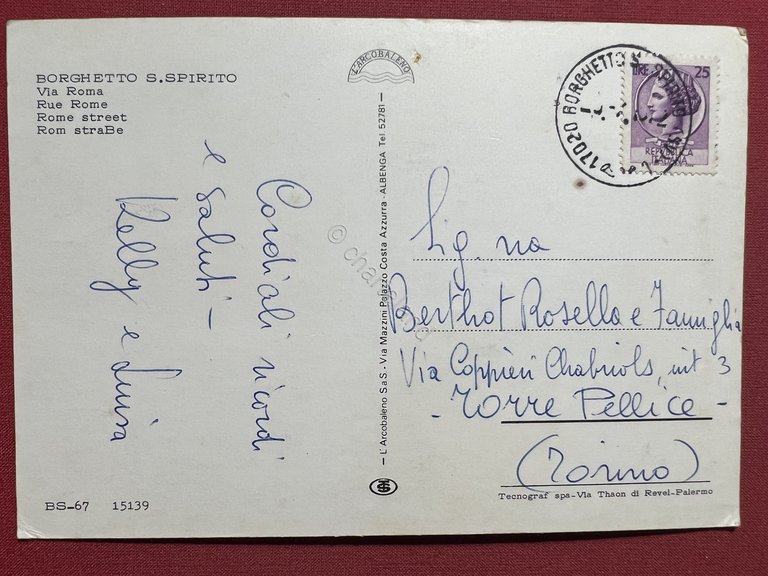 BORGHETTO S.SPIRITO
Via Roma
Rue Rome
Rome street
Rom straBe
L'ARCOBALENO
Cordiali ricordi
e saluti-
Kelly e Luisa
BS-67 15139
— L'Arcobaleno SaS - Via Mazzini Palazzo Costa Azzurra - ALBENGA Tel. 52781 —
17020 BORGHETTO S. SPIRITO
LIRE 25
REPUBBLICA
ITALIANA
Sig. na
Berthot Rosella e Famiglia
Via Coppieri Chabriols, int 3
- TORRE PELLICE -
(Torino)
Tecnograf spa-Via Thaon di Revel-Palermo